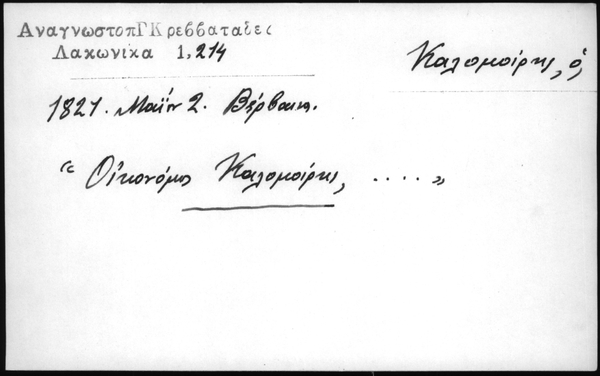 ΑναγνωστοπΓΚρεββαταδες
Λακωνικα 1,214
Καλομοίρης, ὁ
1821. Μαΐου 2. Βέρβαινα.
“ Οἰκονόμος Καλομοίρης, ..... „